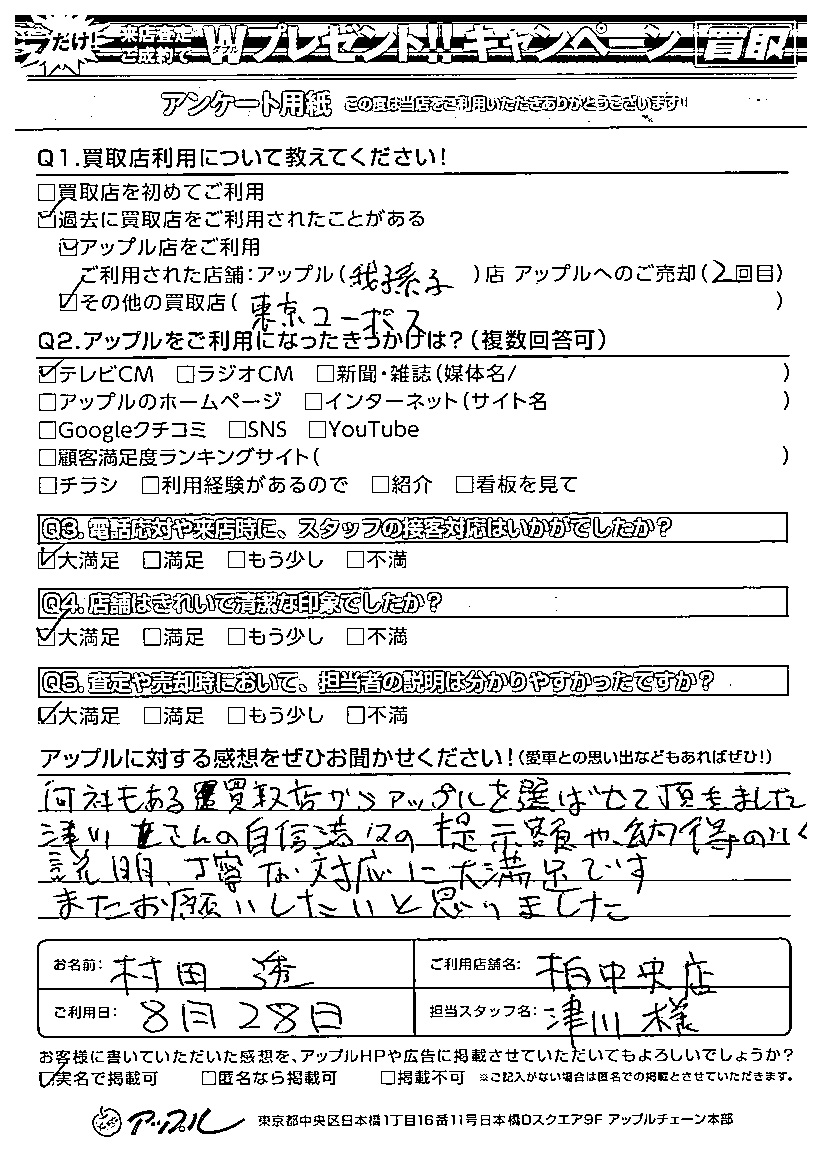 だけ! 来店査定 ご成約で Wプレゼント!! キャンペーン 買取
アンケート用紙 この度は当店をご利用いただきありがとうございます!!
Q1.買取店利用について教えてください!
□買取店を初めてご利用
☑過去に買取店をご利用されたことがある
☑アップル店をご利用
ご利用された店舗:アップル(我孫子)店 アップルへのご売却(2回目)
☑その他の買取店(東京ユーポス)
Q2.アップルをご利用になったきっかけは?(複数回答可)
☑テレビCM □ラジオCM □新聞・雑誌(媒体名/ )
□アップルのホームページ □インターネット(サイト名 )
□Googleクチコミ □SNS □YouTube
□顧客満足度ランキングサイト( )
□チラシ □利用経験があるので □紹介 □看板を見て
Q3.電話応対や来店時に、スタッフの接客対応はいかがでしたか?
☑大満足 □満足 □もう少し □不満
Q4.店舗はきれいで清潔な印象でしたか?
☑大満足 □満足 □もう少し □不満
Q5.査定や売却時において、担当者の説明は分かりやすかったですか?
☑大満足 □満足 □もう少し □不満
アップルに対する感想をぜひお聞かせください!(愛車との思い出などもあればぜひ!)
何社もある買取店からアップルを選ばせて頂きました
津川さんの自信満々の提示額や、納得のいく
説明、丁寧な対応に大満足です
またお願いしたいと思いました
お名前: 村田 透 ご利用店舗名: 柏中央店
ご利用日: 8月28日 担当スタッフ名: 津川様
お客様に書いていただいた感想を、アップルHPや広告に掲載させていただいてもよろしいでしょうか?
☑実名で掲載可 □匿名なら掲載可 □掲載不可 ※ご記入がない場合は匿名での掲載とさせていただきます。
アップル 東京都中央区日本橋1丁目16番11号日本橋Dスクエア9F アップルチェーン本部